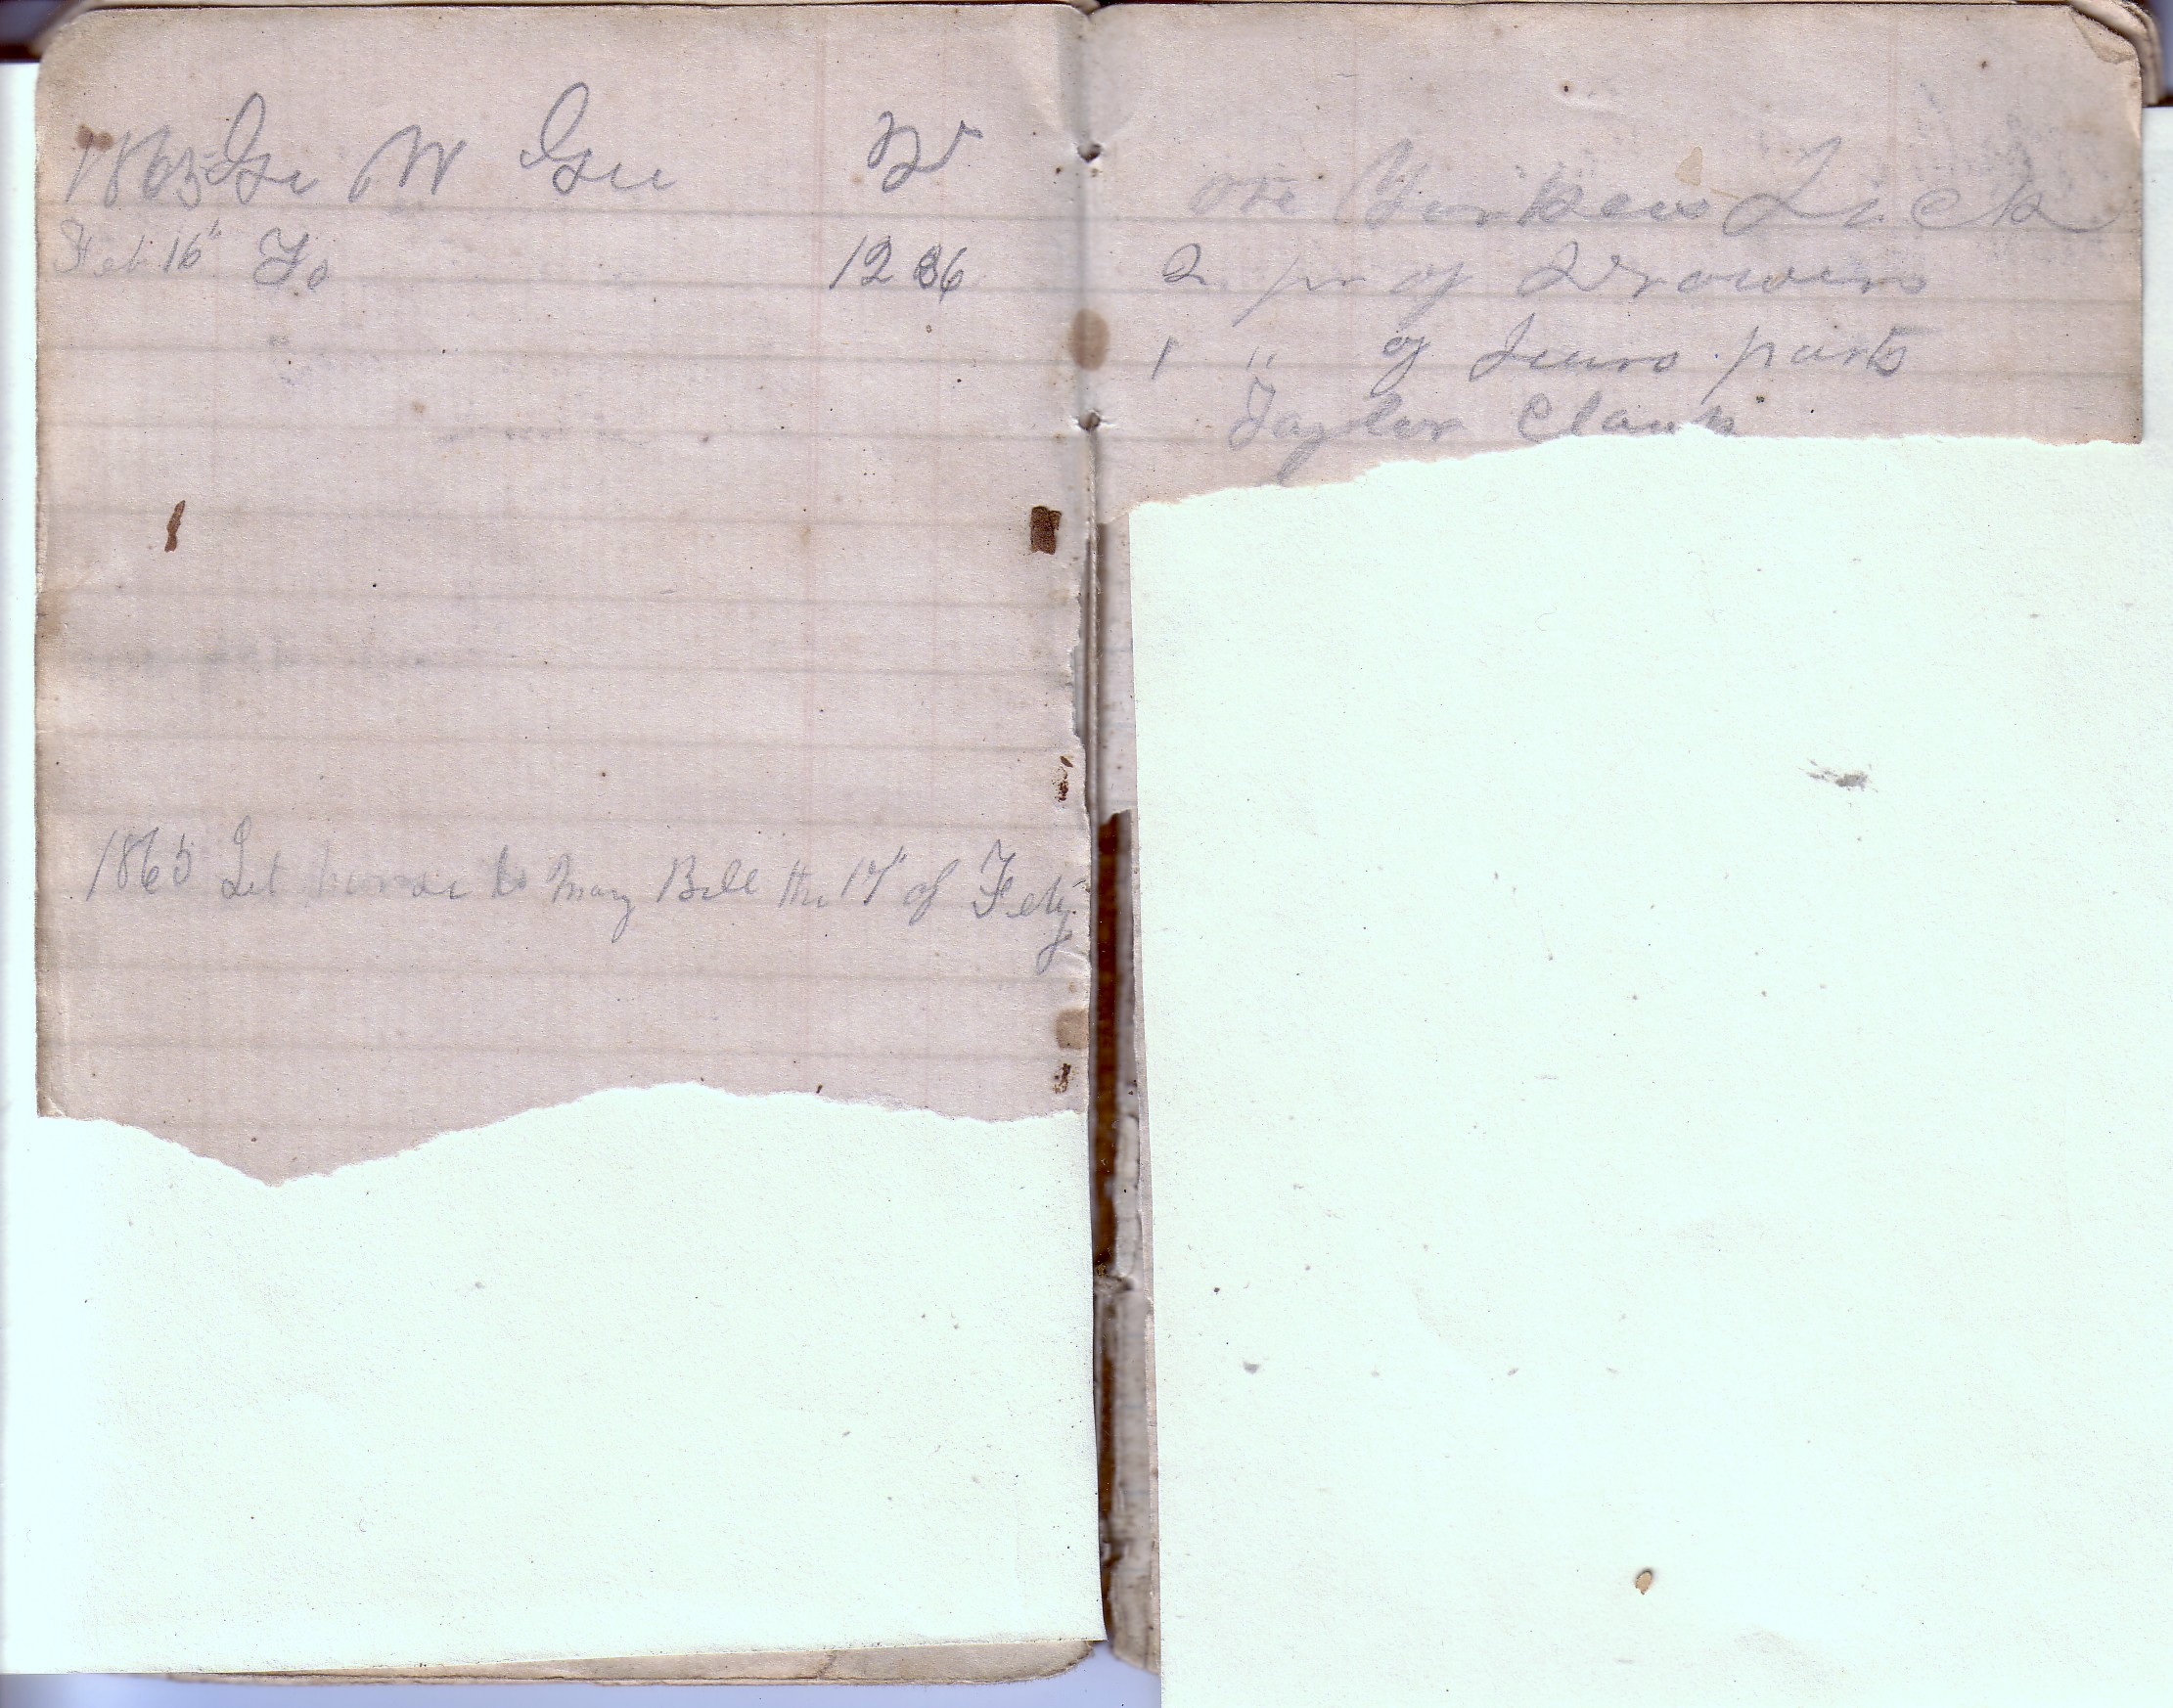 1865 Geo W Gee Dr
Feb 16" To 12 36
"
1865 Let horse to Mary Bell the 17" of Feby
one Yankees Sack
2 pr of Drowers
1 " of Juns pants
Taylor Clark